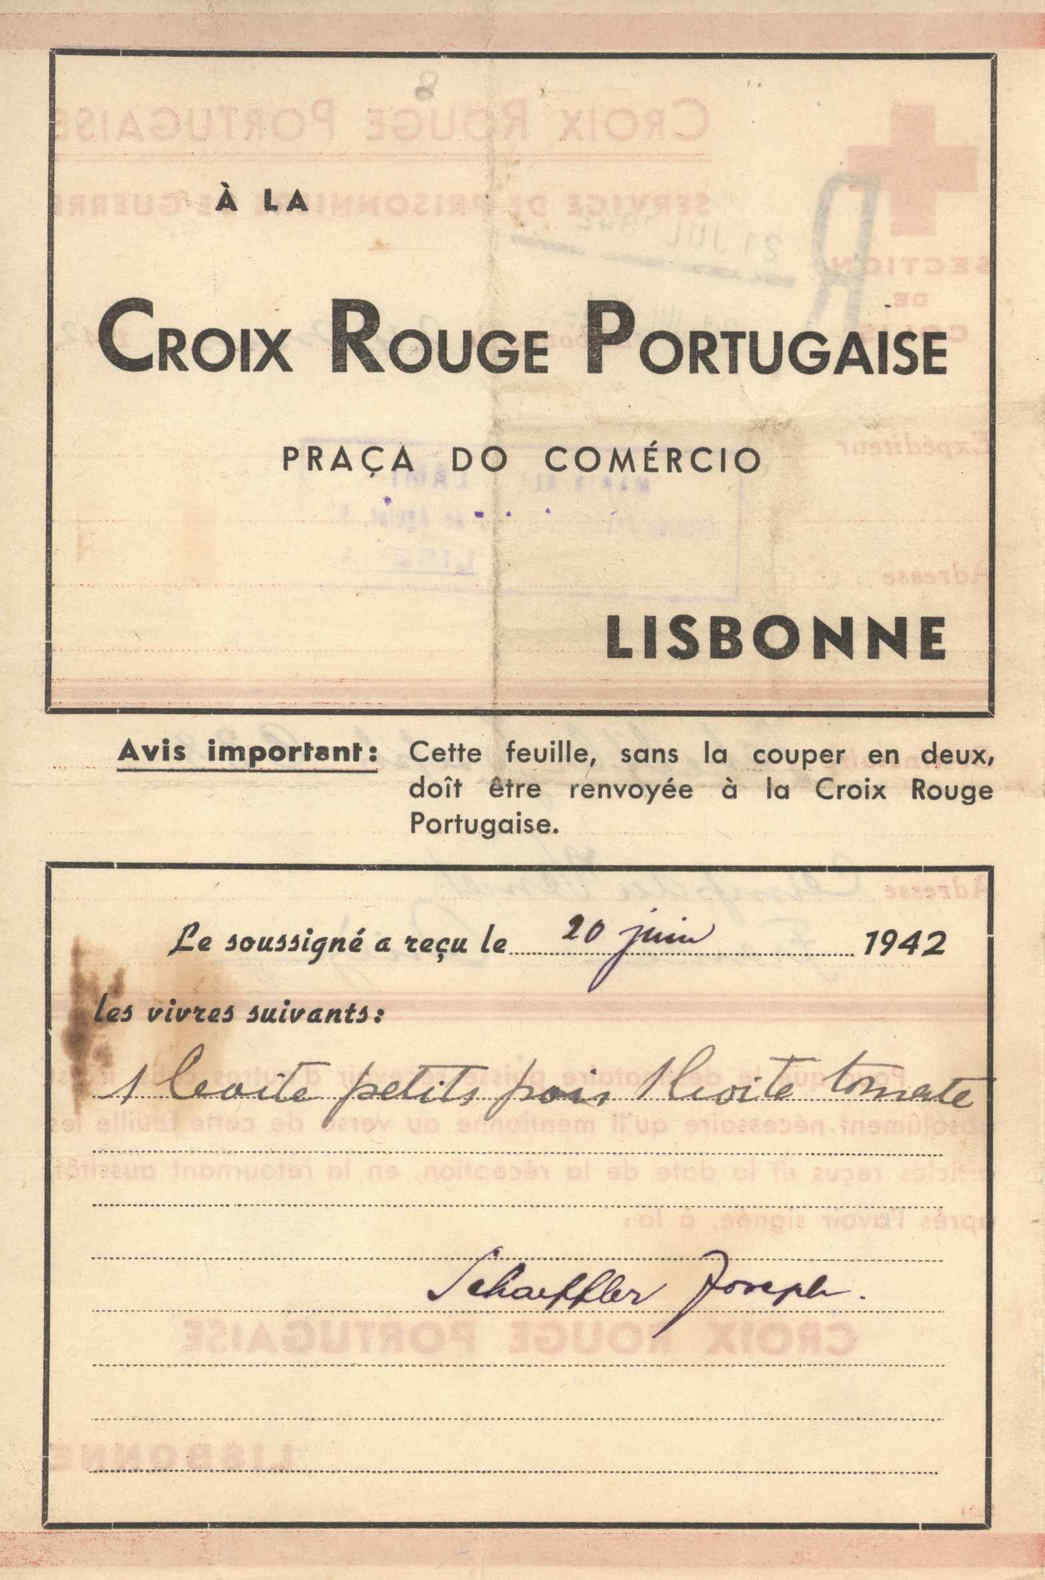 À LA
CROIX ROUGE PORTUGAISE
PRAÇA DO COMÉRCIO
LISBONNE
Avis important: Cette feuille, sans la couper en deux,
doît être renvoyée à la Croix Rouge
Portugaise.
Le soussigné a reçu le 20 juin 1942
les vivres suivants:
1 boite petits pois 1 boite tomate
Schaeffler Joseph.